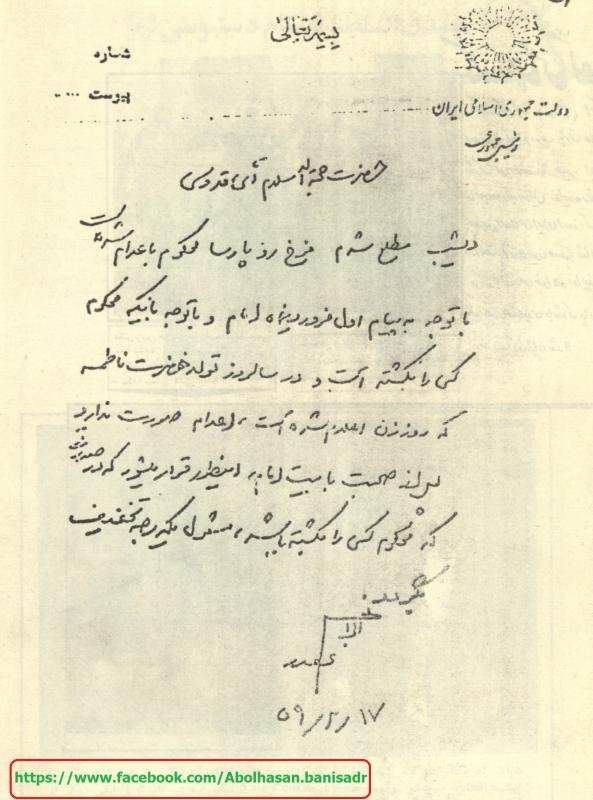 بسمه تعالی
شماره
پیوست ....
دولت جمهوری اسلامی ایران
رئیس جمهوری
حضرت حجة الاسلام آقای قدوسی
دیشب مطلع شدم فرخ رو پارسا محکوم باعدام شده است
با توجه به پیام اول فروردین ماه امام و با توجه باینکه محکوم
کسی را نکشته است و در سالروز تولد حضرت فاطمه
که روز زن اعلام شده است، اعدام صورت ندارد
پس از صحبت با بیت امام، اینطور قرار میشود که در
که محکوم کسی را نکشته باشد، مشمول یکدرجه تخفیف
بگیرد
۵۹/۲/۱۷
https://www.facebook.com/Abolhasan.banisadr